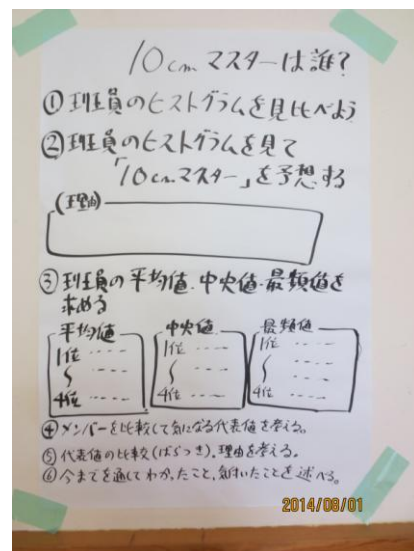 10cm マスターは誰?
①班員のヒストグラムを見比べよう
②班員のヒストグラムを見て
「10cmマスター」を予想する
(理由)
③班員の平均値.中央値.最頻値を
求める
平均値 中央値 最頻値
1位 ---- 1位 ---- 1位 ----
〜 ---- 〜 ---- 〜 ----
4位 ---- 4位 ---- 4位 ----
④メンバーを比較して気になる代表値を考える。
⑤代表値の比較(ばらつき),理由を考える。
⑥今までを通してわかったこと,気付いたことを述べる。
2014/08/01